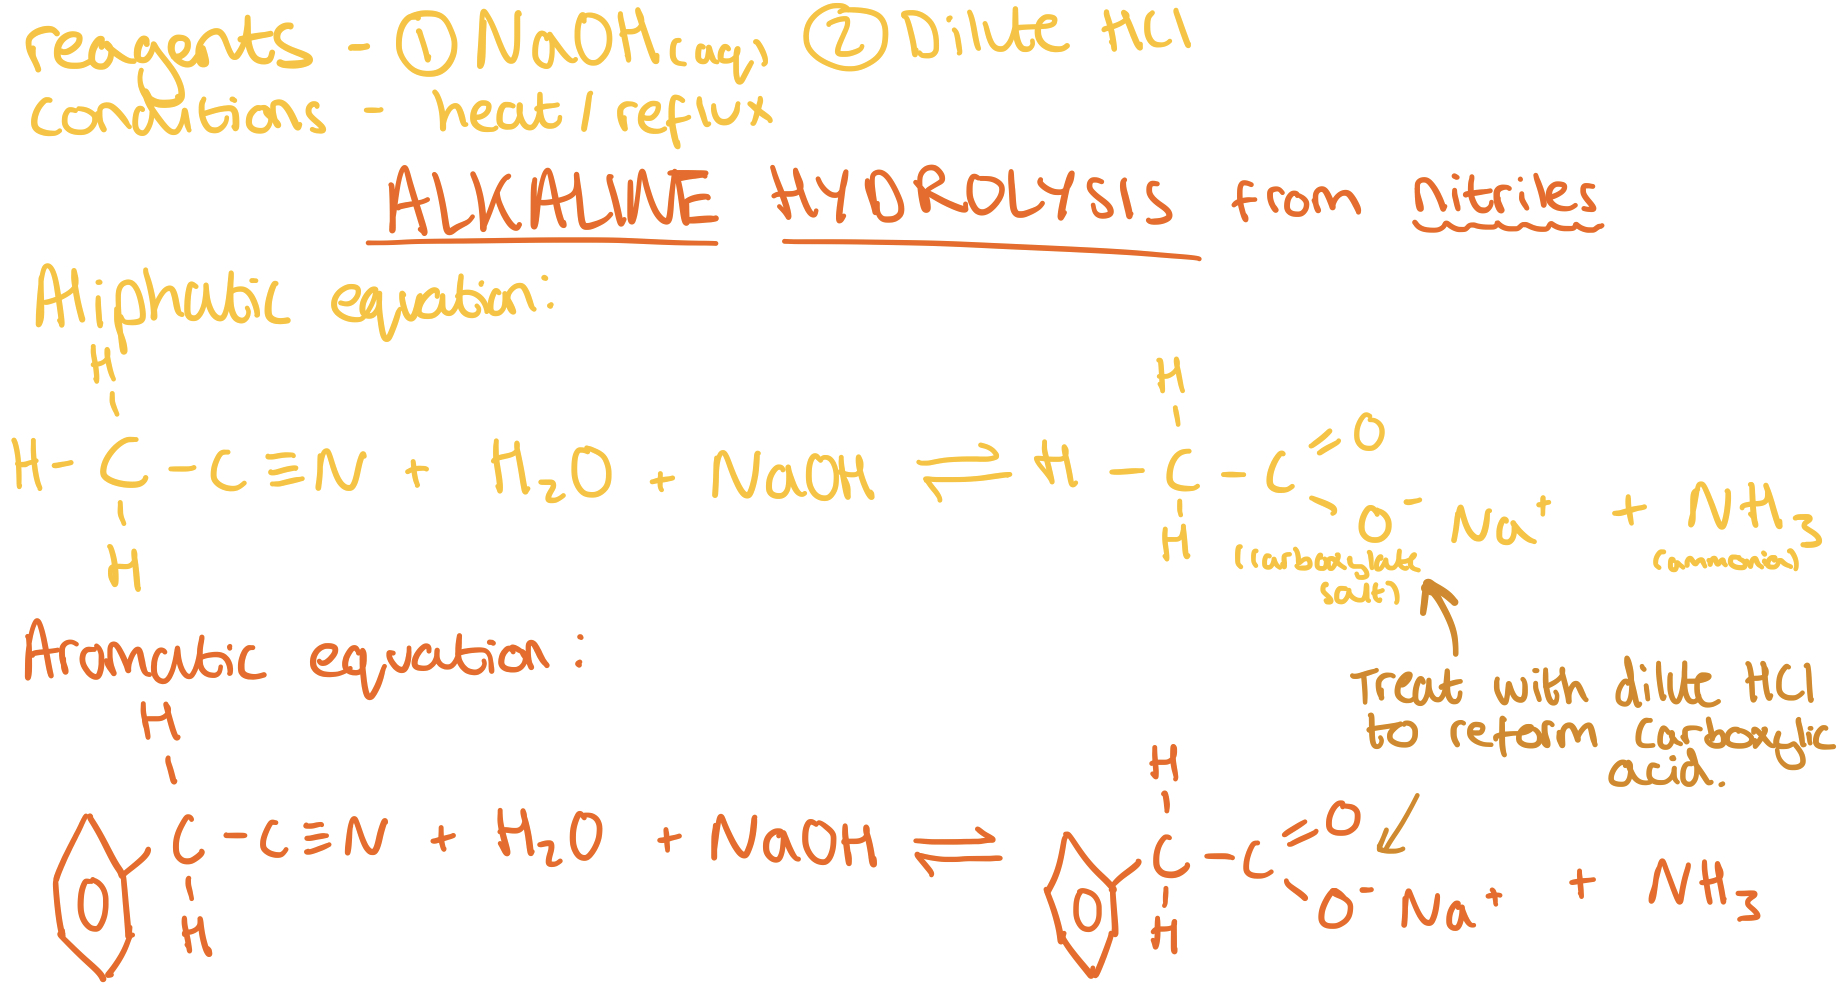 reagents - ① NaOH(aq) ② Dilute HCl
conditions - heat / reflux
ALKALINE HYDROLYSIS from nitriles
Aliphatic equation:
H
H - C - C ≡ N + H₂O + NaOH ⇌ H - C - C = O
H
H
O⁻ Na⁺ + NH₃
H
(carboxylate salt)
(ammonia)
Treat with dilute HCl
to reform carboxylic
acid.
Aromatic equation:
H
C - C ≡ N + H₂O + NaOH ⇌ C - C = O
H
H
O⁻ Na⁺ + NH₃
H